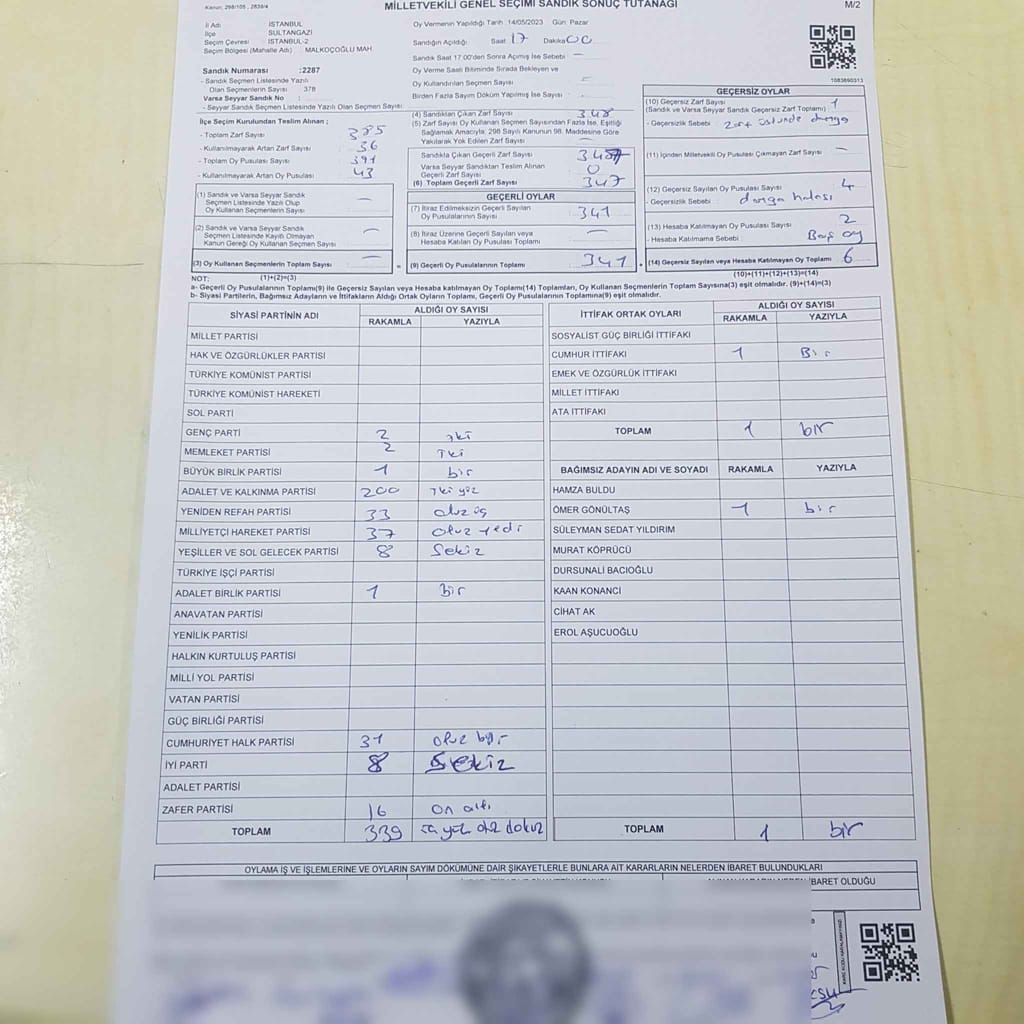 Kanun: 298/105 , 2839/4
MİLLETVEKİLİ GENEL SEÇİMİ SANDIK SONUÇ TUTANAĞI
M/2
İl Adı : İSTANBUL
İlçe : SULTANGAZİ
Seçim Çevresi : İSTANBUL-2
Seçim Bölgesi (Mahalle Adı) : MALKOÇOĞLU MAH
Sandık Numarası :2287
- Sandık Seçmen Listesinde Yazılı
Olan Seçmenlerin Sayısı 378
Varsa Seyyar Sandık No :
- Seyyar Sandık Seçmen Listesinde Yazılı Olan Seçmen Sayısı:
İlçe Seçim Kurulundan Teslim Alınan ;
- Toplam Zarf Sayısı 385
- Kullanılmayarak Artan Zarf Sayısı 36
- Toplam Oy Pusulası Sayısı 391
- Kullanılmayarak Artan Oy Pusulası 43
(1) Sandık ve Varsa Seyyar Sandık
Seçmen Listesinde Yazılı Olup
Oy Kullanan Seçmenlerin Sayısı —
(2) Sandık ve Varsa Seyyar Sandık
Seçmen Listesinde Kayıtlı Olmayan
Kanun Gereği Oy Kullanan Seçmen Sayısı —
(3) Oy Kullanan Seçmenlerin Toplam Sayısı —
(1)+(2)=(3)
Oy Vermenin Yapıldığı Tarih :14/05/2023 Gün: Pazar
Sandığın Açıldığı Saat 17 Dakika 00
Sandık Saat 17.00'den Sonra Açılmış İse Sebebi : —
Oy Verme Saati Bitiminde Sırada Bekleyen ve
Oy Kullandırılan Seçmen Sayısı —
Birden Fazla Sayım Döküm Yapılmış İse Sayısı —
(4) Sandıktan Çıkan Zarf Sayısı 348
(5) Zarf Sayısı Oy Kullanan Seçmen Sayısından Fazla İse, Eşitliği
Sağlamak Amacıyla; 298 Sayılı Kanunun 98. Maddesine Göre
Yakılarak Yok Edilen Zarf Sayısı —
Sandıkta Çıkan Geçerli Zarf Sayısı 347
Varsa Seyyar Sandıktan Teslim Alınan
Geçerli Zarf Sayısı 0
(6) Toplam Geçerli Zarf Sayısı 347
GEÇERLİ OYLAR
(7) İtiraz Edilmeksizin Geçerli Sayılan
Oy Pusulalarının Sayısı 341
(8) İtiraz Üzerine Geçerli Sayılan veya
Hesaba Katılan Oy Pusulası Toplamı —
(9) Geçerli Oy Pusulalarının Toplamı 341
1083690313
GEÇERSİZ OYLAR
(10) Geçersiz Zarf Sayısı 1
(Sandık ve Varsa Seyyar Sandık Geçersiz Zarf Toplamı)
- Geçersizlik Sebebi zarf üstünde damga
(11) İçinden Milletvekili Oy Pusulası Çıkmayan Zarf Sayısı —
(12) Geçersiz Sayılan Oy Pusulası Sayısı 4
- Geçersizlik Sebebi damga hatası
(13) Hesaba Katılmayan Oy Pusulası Sayısı 2
- Hesaba Katılmama Sebebi Boş oy
(14) Geçersiz Sayılan veya Hesaba Katılmayan Oy Toplamı 6
(10)+(11)+(12)+(13)=(14)
NOT:
a- Geçerli Oy Pusulalarının Toplamı(9) ile Geçersiz Sayılan veya Hesaba katılmayan Oy Toplamı(14) Toplamları, Oy Kullanan Seçmenlerin Toplam Sayısına(3) eşit olmalıdır. (9)+(14)=(3)
b- Siyasi Partilerin, Bağımsız Adayların ve İttifakların Aldığı Ortak Oyların Toplamı, Geçerli Oy Pusulalarının Toplamına(9) eşit olmalıdır.
SİYASİ PARTİNİN ADI ALDIĞI OY SAYISI
RAKAMLA YAZIYLA
MİLLET PARTİSİ
HAK VE ÖZGÜRLÜKLER PARTİSİ
TÜRKİYE KOMÜNİST PARTİSİ
TÜRKİYE KOMÜNİST HAREKETİ
SOL PARTİ
GENÇ PARTİ 2 iki
MEMLEKET PARTİSİ 2 iki
BÜYÜK BİRLİK PARTİSİ 1 bir
ADALET VE KALKINMA PARTİSİ 200 iki yüz
YENİDEN REFAH PARTİSİ 33 otuz üç
MİLLİYETÇİ HAREKET PARTİSİ 37 otuz yedi
YEŞİLLER VE SOL GELECEK PARTİSİ 8 Sekiz
TÜRKİYE İŞÇİ PARTİSİ
ADALET BİRLİK PARTİSİ 1 Bir
ANAVATAN PARTİSİ
YENİLİK PARTİSİ
HALKIN KURTULUŞ PARTİSİ
MİLLİ YOL PARTİSİ
VATAN PARTİSİ
GÜÇ BİRLİĞİ PARTİSİ
CUMHURİYET HALK PARTİSİ 31 otuz bir
İYİ PARTİ 8 Sekiz
ADALET PARTİSİ
ZAFER PARTİSİ 16 on altı
TOPLAM 339 otuz dokuz
İTTİFAK ORTAK OYLARI ALDIĞI OY SAYISI
RAKAMLA YAZIYLA
SOSYALİST GÜÇ BİRLİĞİ İTTİFAKI
CUMHUR İTTİFAKI 1 Bir
EMEK VE ÖZGÜRLÜK İTTİFAKI
MİLLET İTTİFAKI
ATA İTTİFAKI
TOPLAM 1 bir
BAĞIMSIZ ADAYIN ADI VE SOYADI RAKAMLA YAZIYLA
HAMZA BULDU
ÖMER GÖNÜLTAŞ 1 bir
SÜLEYMAN SEDAT YILDIRIM
MURAT KÖPRÜCÜ
DURSUNALİ BACIOĞLU
KAAN KONANCİ
CİHAT AK
EROL AŞUCUOĞLU
TOPLAM 1 bir
OYLAMA İŞ VE İŞLEMLERİNE VE OYLARIN SAYIM DÖKÜMÜNE DAİR ŞİKAYETLERLE BUNLARA AİT KARARLARIN NELERDEN İBARET BULUNDUKLARI
İBARET OLDUĞU